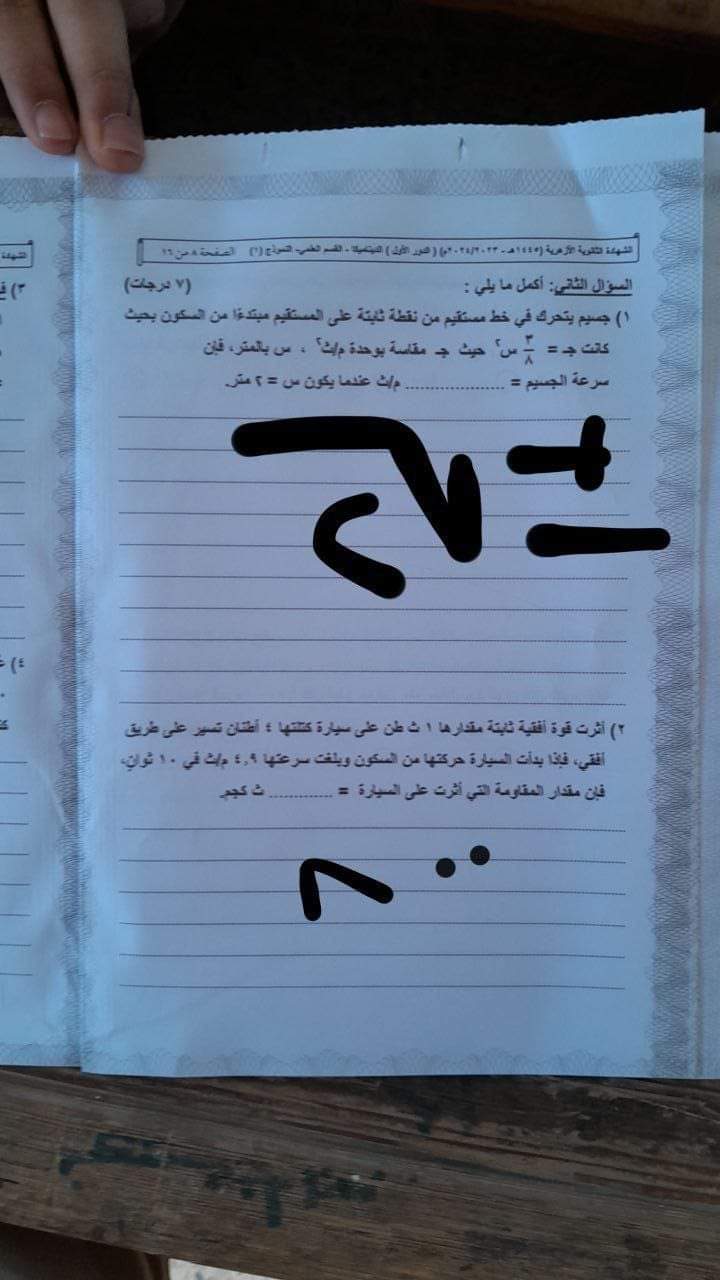 الشهادة الثانوية الأزهرية (١٤٤٥هـ - ٢٠٢٤/٢٠٢٣م) ( الدور الأول ) الديناميكا - القسم العلمي- النموذج (١) الصفحة ٨ من ١٦
السؤال الثاني: أكمل ما يلي : (٧ درجات)
١) جسيم يتحرك في خط مستقيم من نقطة ثابتة على المستقيم مبتدءًا من السكون بحيث
كانت جـ = ٣/٨ س٢ حيث جـ مقاسة بوحدة م/ث٢ ، س بالمتر، فإن
سرعة الجسيم = .................... م/ث عندما يكون س = ٢ متر.
± √٢
٢) أثرت قوة أفقية ثابتة مقدارها ١ ث طن على سيارة كتلتها ٤ أطنان تسير على طريق
أفقي، فإذا بدأت السيارة حركتها من السكون وبلغت سرعتها ٤,٩ م/ث في ١٠ ثوانٍ،
فإن مقدار المقاومة التي أثرت على السيارة = ............. ث كجم.
٨٠٠
الشهادة
٣)
٤)